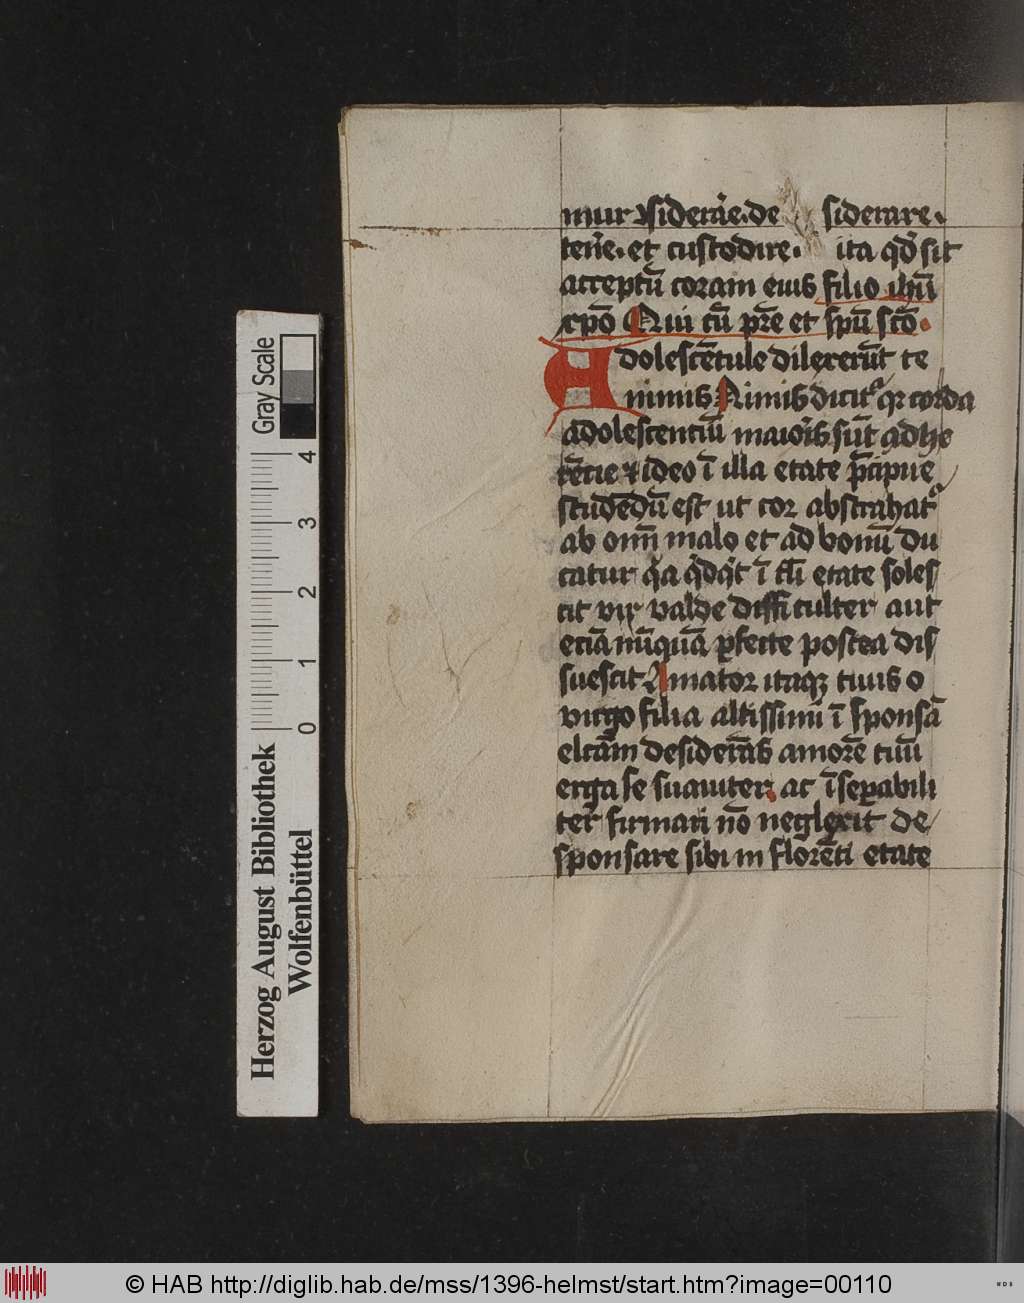 mur ꝯsiderāe · de siderare ·
ten̄e · et custodire · ita qđ sit
acceptū coram eius filio ihū
xpō Qui cū pr̄e et spū scō ·
Adolescētule dilexerūt te
nimis Nimis dicit᷑ qꝛ corda
adolescentiū maiorīs sūt adhe
rētie ⁊ ideo ī illa etate p̄cipue
studēdū est ut cor abstrahat᷑
ab om̄i malo et ad bonū du
catur q̄a q̄dq̄t ī tali etate soles
cit vix valde difficulter aut
eciā nūquā ꝑfecte postea dis
suescit Amator itaqꝫ tuus o
virgo filia altissimi ī sponsā
elcām desiderās amorē tuū
erga se suauiter ac īseꝑabili
ter firmari nō neglexit de
sponsare sibi in florēti etate
Gray Scale
4
3
2
1
0
Herzog August Bibliothek
Wolfenbüttel
© HAB http://diglib.hab.de/mss/1396-helmst/start.htm?image=00110
WDB